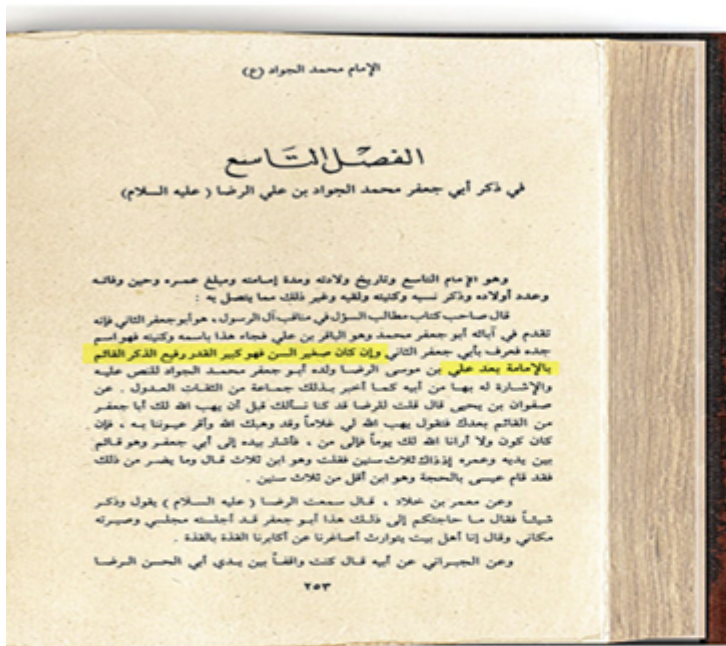 الإمام محمد الجواد (ع)
الفصل التاسع
في ذكر أبي جعفر محمد الجواد بن علي الرضا ( عليه السلام)
وهو الإمام التاسع وتاريخ ولادته ومدة إمامته ومبلغ عمره وحين وفاته
وعدد أولاده وذكر نسبه وكنيته ولقبه وغير ذلك مما يتصل به :
قال صاحب كتاب مطالب السؤل في مناقب آل الرسول ، هو أبو جعفر الثاني فإنه
تقدم في آبائه أبو جعفر محمد وهو الباقر بن علي فجاء هذا باسمه وكنيته فهو اسم
جده فعرف بأبي جعفر الثاني وإن كان صغير السن فهو كبير القدر رفيع الذكر القائم
بالإمامة بعد علي بن موسى الرضا ولده أبو جعفر محمد الجواد للنص عليه
والإشارة له بها من أبيه كما أخبر بذلك جماعة من الثقات العدول . عن
صفوان بن يحيى قال قلت للرضا قد كنا نسألك قبل أن يهب الله لك أبا جعفر
من القائم بعدك فتقول يهب الله لي غلاماً وقد وهبك الله وأقر عيوننا به ، فإن
كان كون ولا أرانا الله لك يوماً فإلى من ، فأشار بيده إلى أبي جعفر وهو قائم
بين يديه وعمره إذ ذاك ثلاث سنين فقلت وهو ابن ثلاث قال وما يضر من ذلك
فقد قام عيسى بالحجة وهو ابن أقل من ثلاث سنين .
وعن معمر بن خلاد ، قال سمعت الرضا ( عليه السلام ) يقول وذكر
شيئاً فقال ما حاجتكم إلى ذلك هذا أبو جعفر قد أجلسته مجلسي وصيرته
مكاني وقال إنا أهل بيت يتوارث أصاغرنا عن أكابرنا القذة بالقذة .
وعن الجيراني عن أبيه قال كنت واقفاً بين يدي أبي الحسن الرضا
٢٥٣